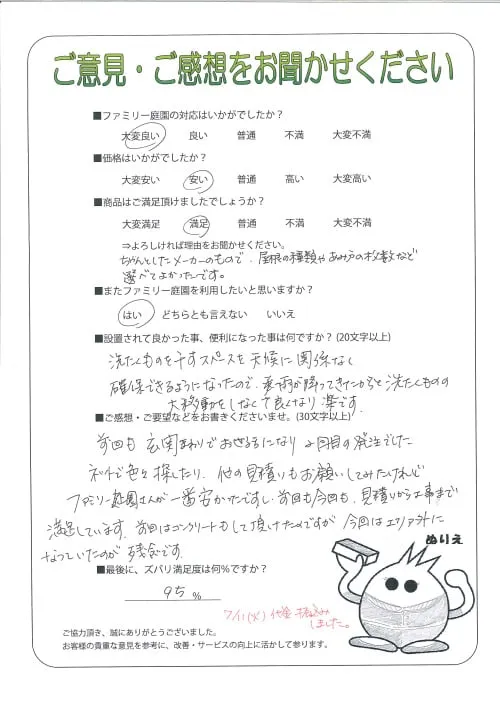 ご意見・ご感想をお聞かせください
■ファミリー庭園の対応はいかがでしたか？
大変良い 良い 普通 不満 大変不満
■価格はいかがでしたか？
大変安い 安い 普通 高い 大変高い
■商品はご満足頂けましたでしょうか？
大変満足 満足 普通 不満 大変不満
⇒よろしければ理由をお聞かせください。
ちゃんとしたメーカーのもので、屋根の種類やあみ戸の枚数など
選べてよかったです。
■またファミリー庭園を利用したいと思いますか？
はい どちらとも言えない いいえ
■設置されて良かった事、便利になった事は何ですか？(20文字以上)
洗たくものを干すスペースを天候に関係なく
確保できるようになったので、雨が降ってきたからと洗たくものの
大移動をしなくて良くなり楽です。
■ご感想・ご要望などをお書きくださいませ。(30文字以上)
前回も玄関まわりでおせわになり2回目の発注でした
ネットで色々探したり、他の見積りもお願いしてみたけれど
ファミリー庭園さんが一番安かったですし、前回も今回も、見積りから工事まで
満足しています。前回はコンクリートもして頂けたのですが今回はエリア外に
なっていたのが残念です。
ぬりえ
■最後に、ズバリ満足度は何％ですか？
95 %
7/11(火) 代金振込み
しました。
ご協力頂き、誠にありがとうございました。
お客様の貴重な意見を参考に、改善・サービスの向上に活かして参ります。